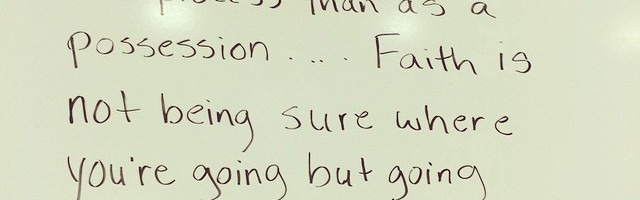 process than as a
possession . . . . Faith is
not being sure where
you're going but going